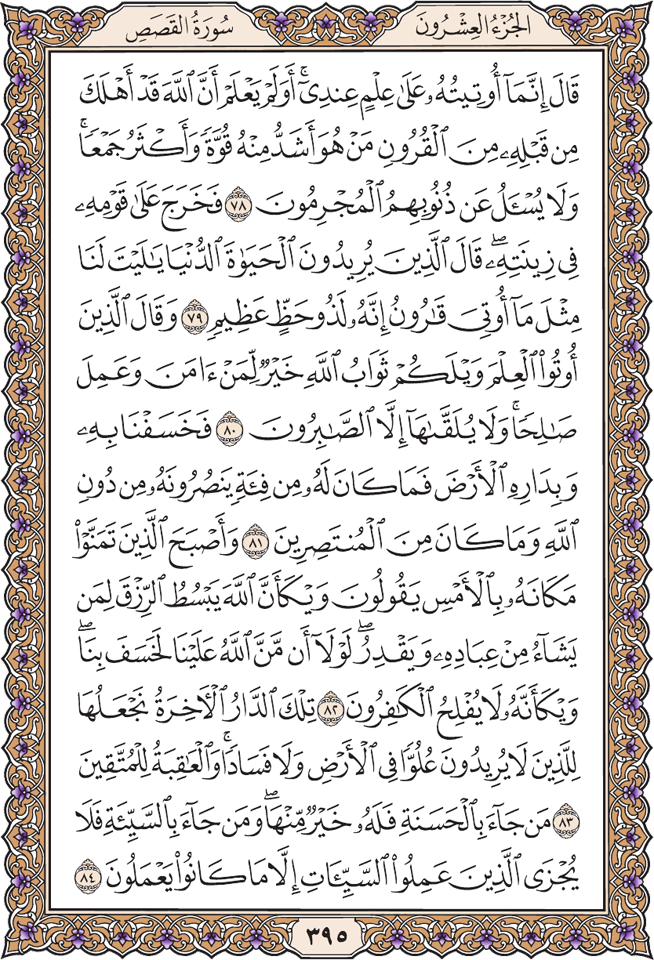 الجُزْءُ العِشْرُونَ
سُورَةُ القَصَصِ
قَالَ إِنَّمَآ أُوتِيتُهُۥ عَلَىٰ عِلْمٍ عِندِىٓۚ أَوَلَمْ يَعْلَمْ أَنَّ ٱللَّهَ قَدْ أَهْلَكَ
مِن قَبْلِهِۦ مِنَ ٱلْقُرُونِ مَنْ هُوَ أَشَدُّ مِنْهُ قُوَّةً وَأَكْثَرُ جَمْعًاۚ
وَلَا يُسْـَٔلُ عَن ذُنُوبِهِمُ ٱلْمُجْرِمُونَ ٧٨ فَخَرَجَ عَلَىٰ قَوْمِهِۦ
فِى زِينَتِهِۦۖ قَالَ ٱلَّذِينَ يُرِيدُونَ ٱلْحَيَوٰةَ ٱلدُّنْيَا يَٰلَيْتَ لَنَا
مِثْلَ مَآ أُوتِىَ قَٰرُونُ إِنَّهُۥ لَذُو حَظٍّ عَظِيمٍ ٧٩ وَقَالَ ٱلَّذِينَ
أُوتُوا۟ ٱلْعِلْمَ وَيْلَكُمْ ثَوَابُ ٱللَّهِ خَيْرٌ لِّمَنْ ءَامَنَ وَعَمِلَ
صَٰلِحًاۚ وَلَا يُلَقَّىٰهَآ إِلَّا ٱلصَّٰبِرُونَ ٨٠ فَخَسَفْنَا بِهِۦ
وَبِدَارِهِ ٱلْأَرْضَ فَمَا كَانَ لَهُۥ مِن فِئَةٍ يَنصُرُونَهُۥ مِن دُونِ
ٱللَّهِ وَمَا كَانَ مِنَ ٱلْمُنتَصِرِينَ ٨١ وَأَصْبَحَ ٱلَّذِينَ تَمَنَّوْا۟
مَكَانَهُۥ بِٱلْأَمْسِ يَقُولُونَ وَيْكَأَنَّ ٱللَّهَ يَبْسُطُ ٱلرِّزْقَ لِمَن
يَشَآءُ مِنْ عِبَادِهِۦ وَيَقْدِرُۖ لَوْلَآ أَن مَّنَّ ٱللَّهُ عَلَيْنَا لَخَسَفَ بِنَاۖ
وَيْكَأَنَّهُۥ لَا يُفْلِحُ ٱلْكَٰفِرُونَ ٨٢ تِلْكَ ٱلدَّارُ ٱلْـَٔاخِرَةُ نَجْعَلُهَا
لِلَّذِينَ لَا يُرِيدُونَ عُلُوًّا فِى ٱلْأَرْضِ وَلَا فَسَادًاۚ وَٱلْعَٰقِبَةُ لِلْمُتَّقِينَ
٨٣ مَن جَآءَ بِٱلْحَسَنَةِ فَلَهُۥ خَيْرٌ مِّنْهَاۖ وَمَن جَآءَ بِٱلسَّيِّئَةِ فَلَا
يُجْزَى ٱلَّذِينَ عَمِلُوا۟ ٱلسَّيِّـَٔاتِ إِلَّا مَا كَانُوا۟ يَعْمَلُونَ ٨٤
٣٩٥